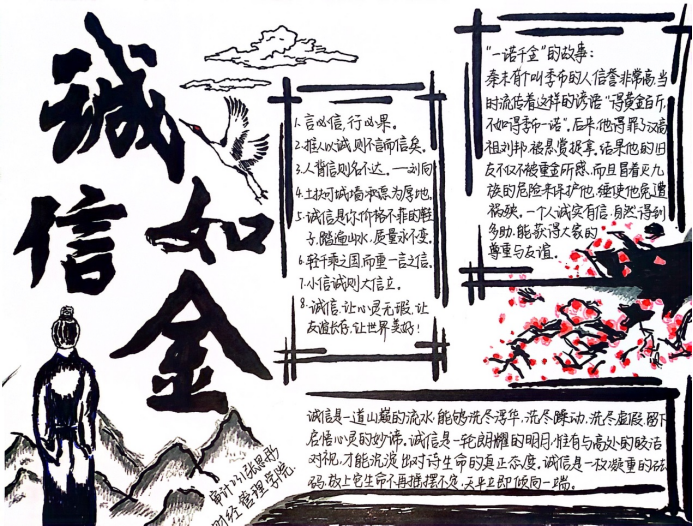 诚信如金
1.言必信,行必果。
2.推人以诚,则不言而信矣。
3.人背信则名不达。——刘向
4.土扶可城墙,积德为厚地。
5.诚信是你价格不菲的鞋
子,踏遍山水,质量永不变。
6.轻千乘之国,而重一言之信。
7.小信诚则大信立。
8.诚信,让心灵无瑕,让
友谊长存,让世界美好!
“一诺千金”的故事:
秦末有个叫季布的人信誉非常高,当
时流传着这样的谚语“得黄金百斤,
不如得季布一诺”。后来,他得罪了汉高
祖刘邦,被悬赏捉拿。结果他的旧
友不仅不被重金所惑,而且冒着灭九
族的危险来保护他,使他免遭
祸殃。一个人诚实有信,自然得到
多助,能获得大家的
尊重与友谊。
诚信是一道山巅的流水,能够洗尽浮华,洗尽躁动,洗尽虚假,留下
启悟心灵的妙谛。诚信是一轮朗耀的明月,惟有与高处的皎洁
对视,才能沉淀出对待生命的真正态度。诚信是一枚凝重的砝
码,放上它生命不再摇摆不定,天平立即倾向一端。
审计231张思
财经管理学院